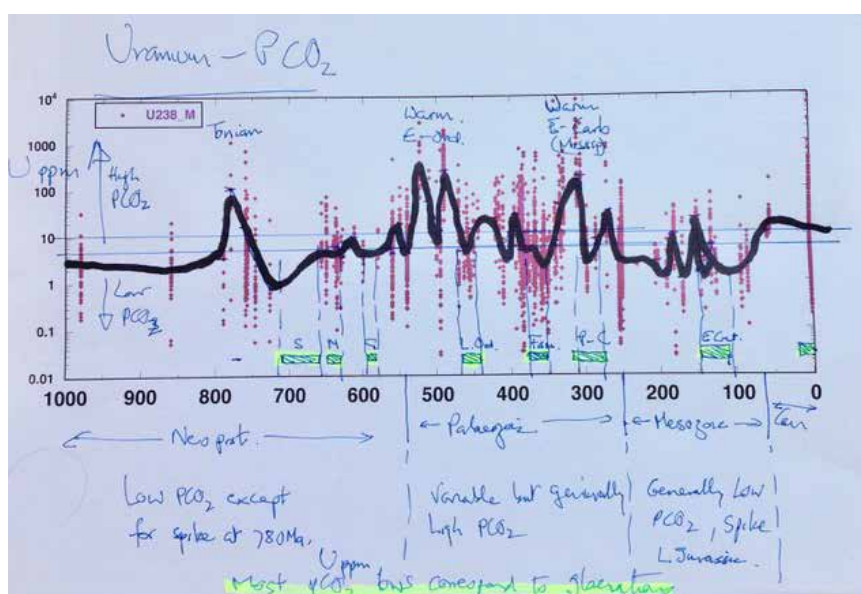 Uranium – PCO₂
10⁴
U238_M
1000
100
10
1
0.1
0.01
U ppm
High
PCO₂
Low
PCO₂
Tonian
Warm
E-Ord.
Warm
E-Carb
S
M
G
L.Ord.
Fam.
P-C
ECret.
1000 900 800 700 600 500 400 300 200 100 0
Neoprot.
Palaeozoic
Mesozoic
Cen
Low PCO₂ except
for spike at 780Ma.
Variable but generally
high PCO₂
Generally Low
PCO₂, Spike
L Jurassic.
U ppm
Most PCO₂ lows correspond to glaciations